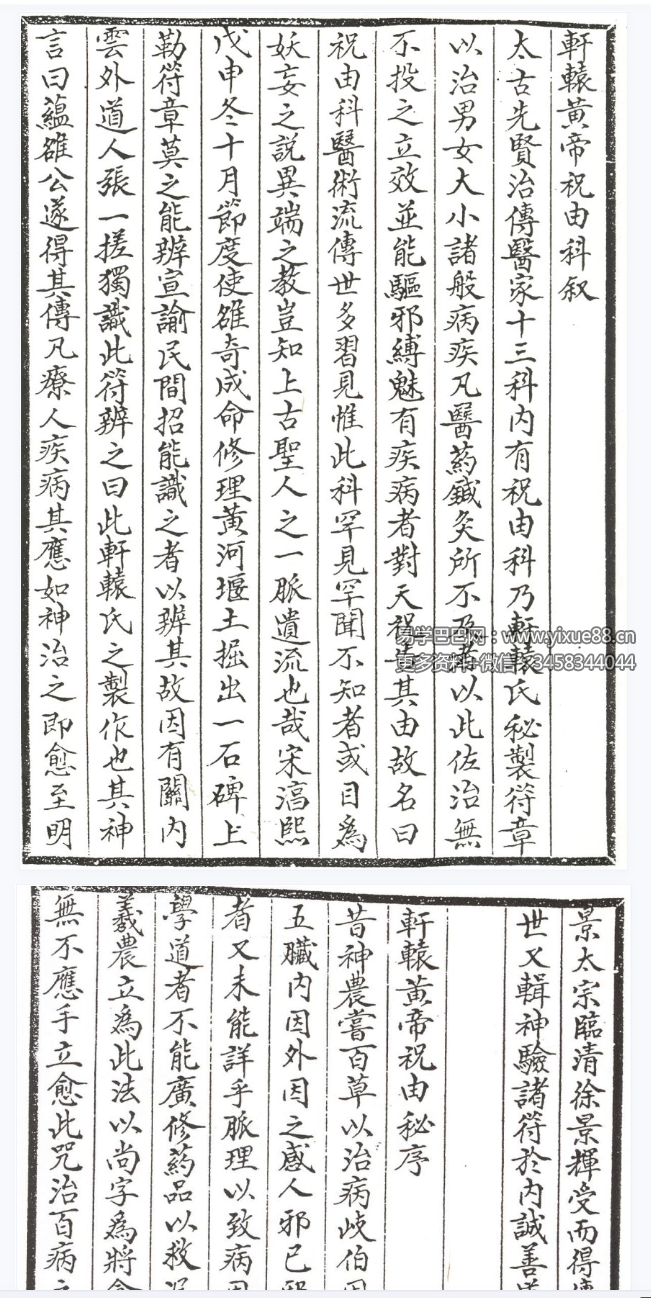 軒轅黃帝祝由科叙
太古先賢治傳醫家十三科內有祝由科乃軒轅氏秘製符章
以治男女大小諸般病疾凡醫药鍼灸所不及者以此佐治無
不投之立效並能驅邪縛魅有疾病者對天祝告其由故名曰
祝由科醫術流傳世多習見惟此科罕見罕聞不知者或目為
妖妄之說異端之教豈知上古聖人之一脈遺流也哉宋淳熙
戊申冬十月節度使雒奇成命修理黃河堰土掘出一石碑上
勒符章莫之能辨宣諭民間招能識之者以辨其故因有關內
雲外道人張一搓獨識此符辨之曰此軒轅氏之製作也其神
言曰蘊雒公遂得其傳凡療人疾病其應如神治之即愈至明
易学巴巴网:www.yixue88.cn
更多资料+微信:3458344044
景太宗臨清徐景輝受而得傳
世又輯神驗諸符於內誠善
軒轅黃帝祝由秘序
昔神農嘗百草以治病岐伯
五臟內因外因之感人邪已
者又未能詳乎脈理以致病
學道者不能廣修药品以救
羲農立為此法以尚字為將
無不應手立愈此咒治百病